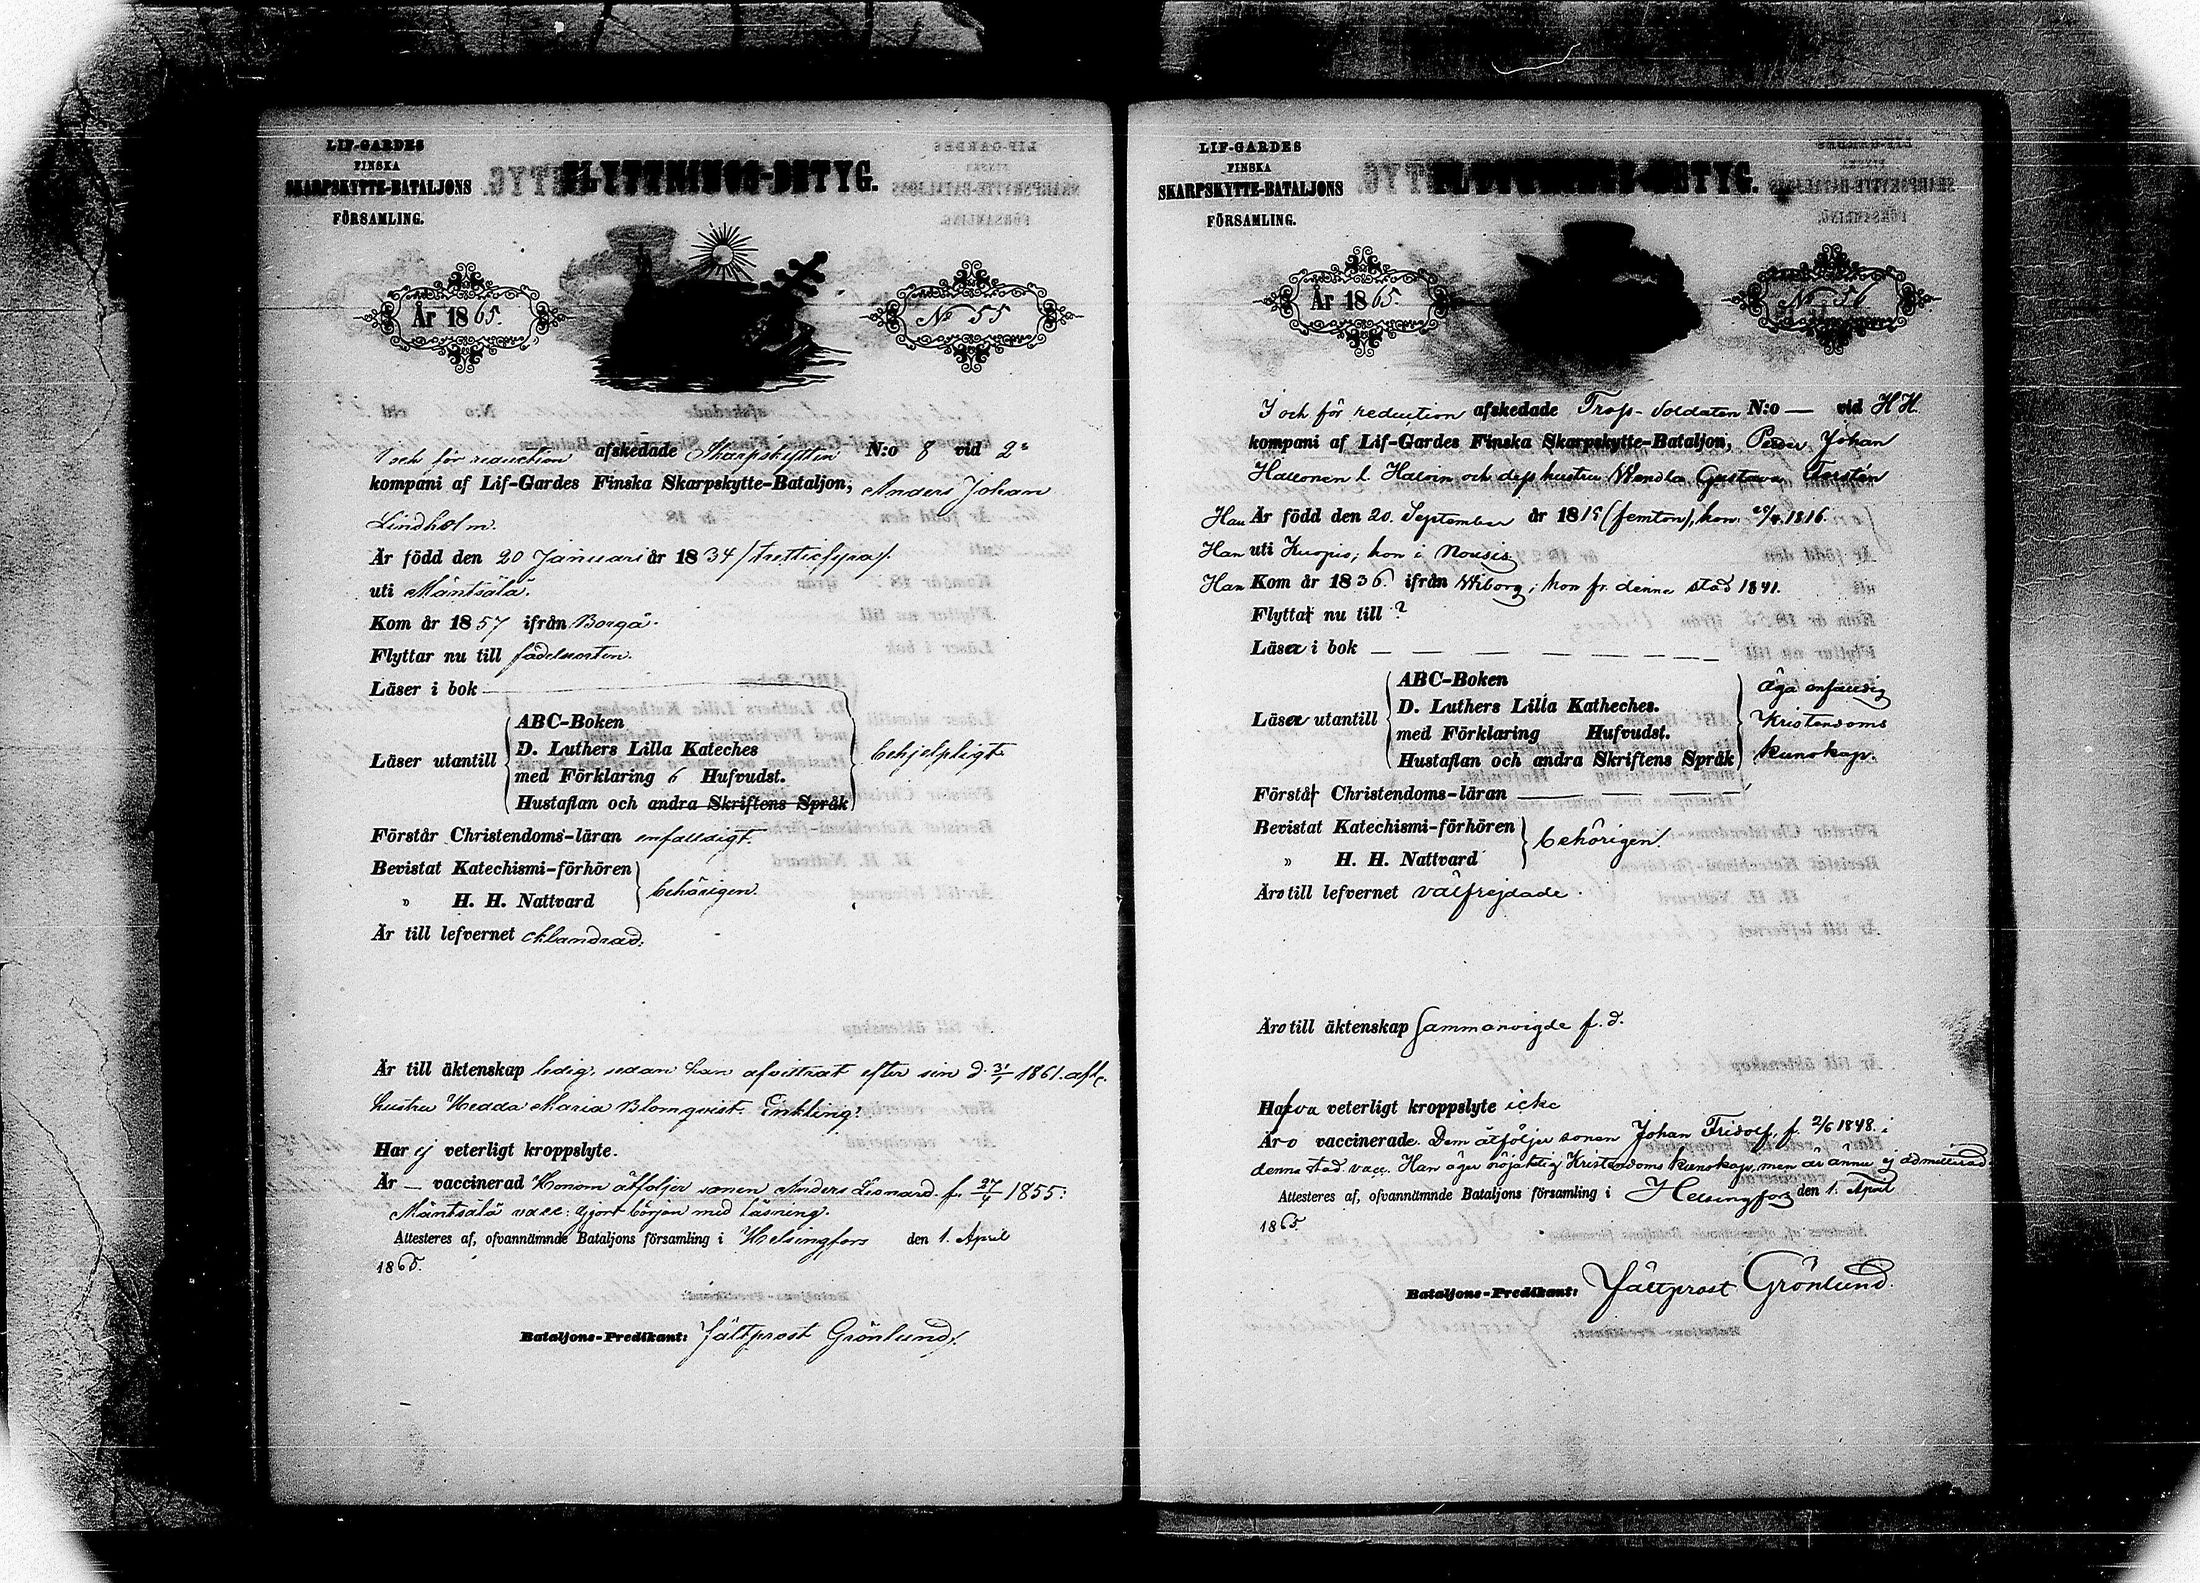 LIF-GARDES
FINSKA
SKARPSKYTTE-BATALJONS
FÖRSAMLING.
FLYTTNINGS-BETYG.
År 1865.
No 55
I och för reduction afskedade Skarpskytten N:o 8 vid 2a
kompani af Lif-Gardes Finska Skarpskytte-Bataljon, Anders Johan
Lindholm.
Är född den 20 Januari år 1834 (trettiofyra).
uti Mäntsälä.
Kom år 1857 ifrån Borgå.
Flyttar nu till födelseorten.
Läser i bok
Läser utantill
ABC-Boken
D. Luthers Lilla Kateches
med Förklaring 6 Hufvudst.
Hustaflan och andra Skriftens Språk
behjelpligt
Förstår Christendoms-läran enfaldigt.
Bevistat Katechismi-förhören
" H. H. Nattvard
behörigen.
Är till lefvernet oklandrad.
Är till äktenskap ledig, sedan han afvittrat efter sin d. 31/1 1861. afl.
hustru Hedda Maria Blomqvist. Enkling!
Har ej veterligt kroppslyte.
Är — vaccinerad Honom åtföljer sonen Anders Leonard. f. 27/4 1855:
Mäntsälä vacc: gjort början med läsning.
Attesteres af, ofvannämnde Bataljons församling i Helsingfors den 1. April
1865.
Bataljons-Predikant: Fältprost Grönlund.
LIF-GARDES
FINSKA
SKARPSKYTTE-BATALJONS
FÖRSAMLING.
FLYTTNINGS-BETYG.
År 1865.
No 56
I och för reduction afskedade Tross-Soldaten N:o — vid H H.
kompani af Lif-Gardes Finska Skarpskytte-Bataljon, Peder Johan
Hallonen l. Haloin och dess hustru Wendla Gustava Forstén
Han Är född den 20. September år 1815 (femton), hon 29/4. 1816.
Han uti Kuopio; hon i Nousis
Han Kom år 1836. ifrån Wiborg; hon fr. denna stad 1841.
Flytta nu till ?
Läsa i bok — — — — — —
Läsa utantill
ABC-Boken
D. Luthers Lilla Katheches.
med Förklaring Hufvudst.
Hustaflan och andra Skriftens Språk
äga enfaldig
Kristendoms
kunskap.
Förstå Christendoms-läran — — —
Bevistat Katechismi-förhören
" H. H. Nattvard
behörigen.
Äro till lefvernet välfrejdade.
Äro till äktenskap sammanvigde f. d.
Hafva veterligt kroppslyte icke
Äro vaccinerade. Dem åtföljer sonen Johan Fridolf, f. 2/6 1848. i
denna stad. vacc. Han äger nöjaktig Kristendoms kunskap, men är ännu ej admitterad
Attesteres af, ofvannämnde Bataljons församling i Helsingfors den 1. April
1865.
Bataljons-Predikant: Fältprost Grönlund.